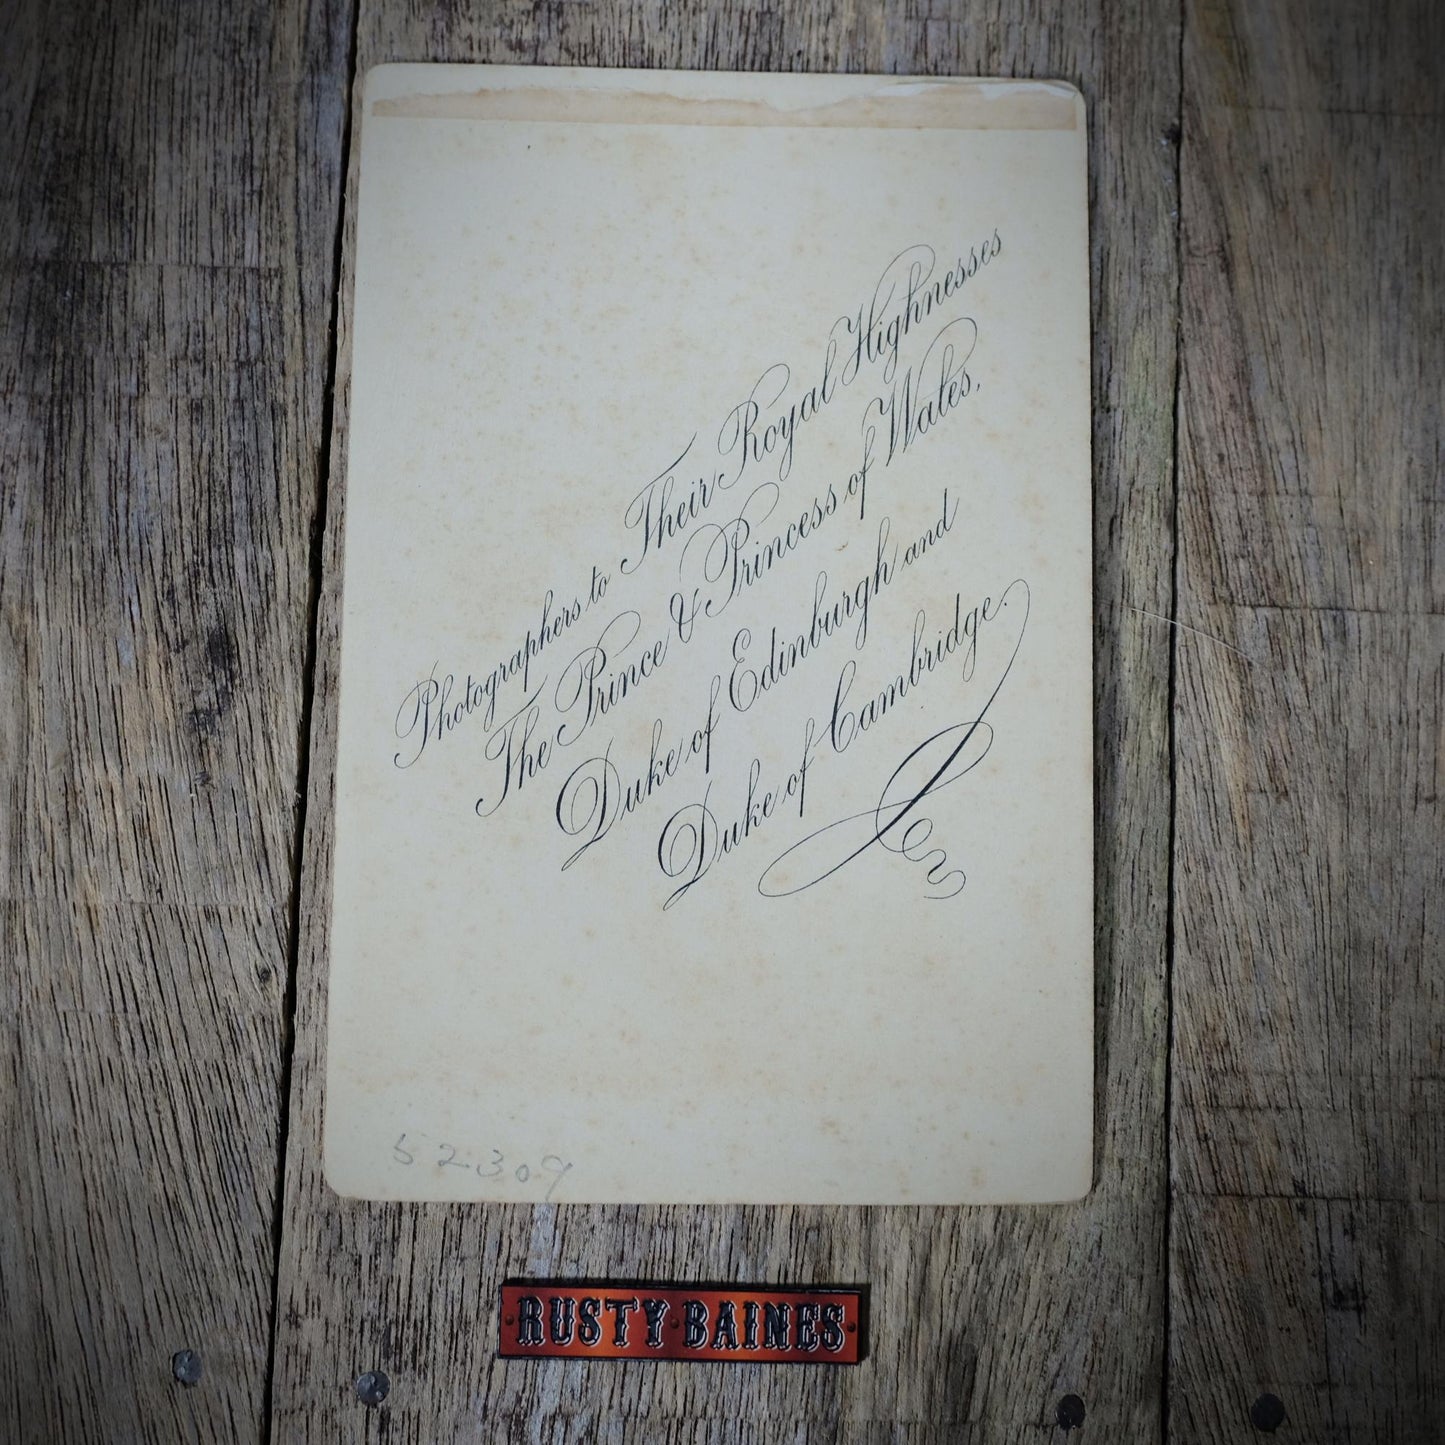 Photographers to Their Royal Highnesses
The Prince & Princess of Wales,
Duke of Edinburgh and
Duke of Cambridge.
52309
RUSTY BAINES